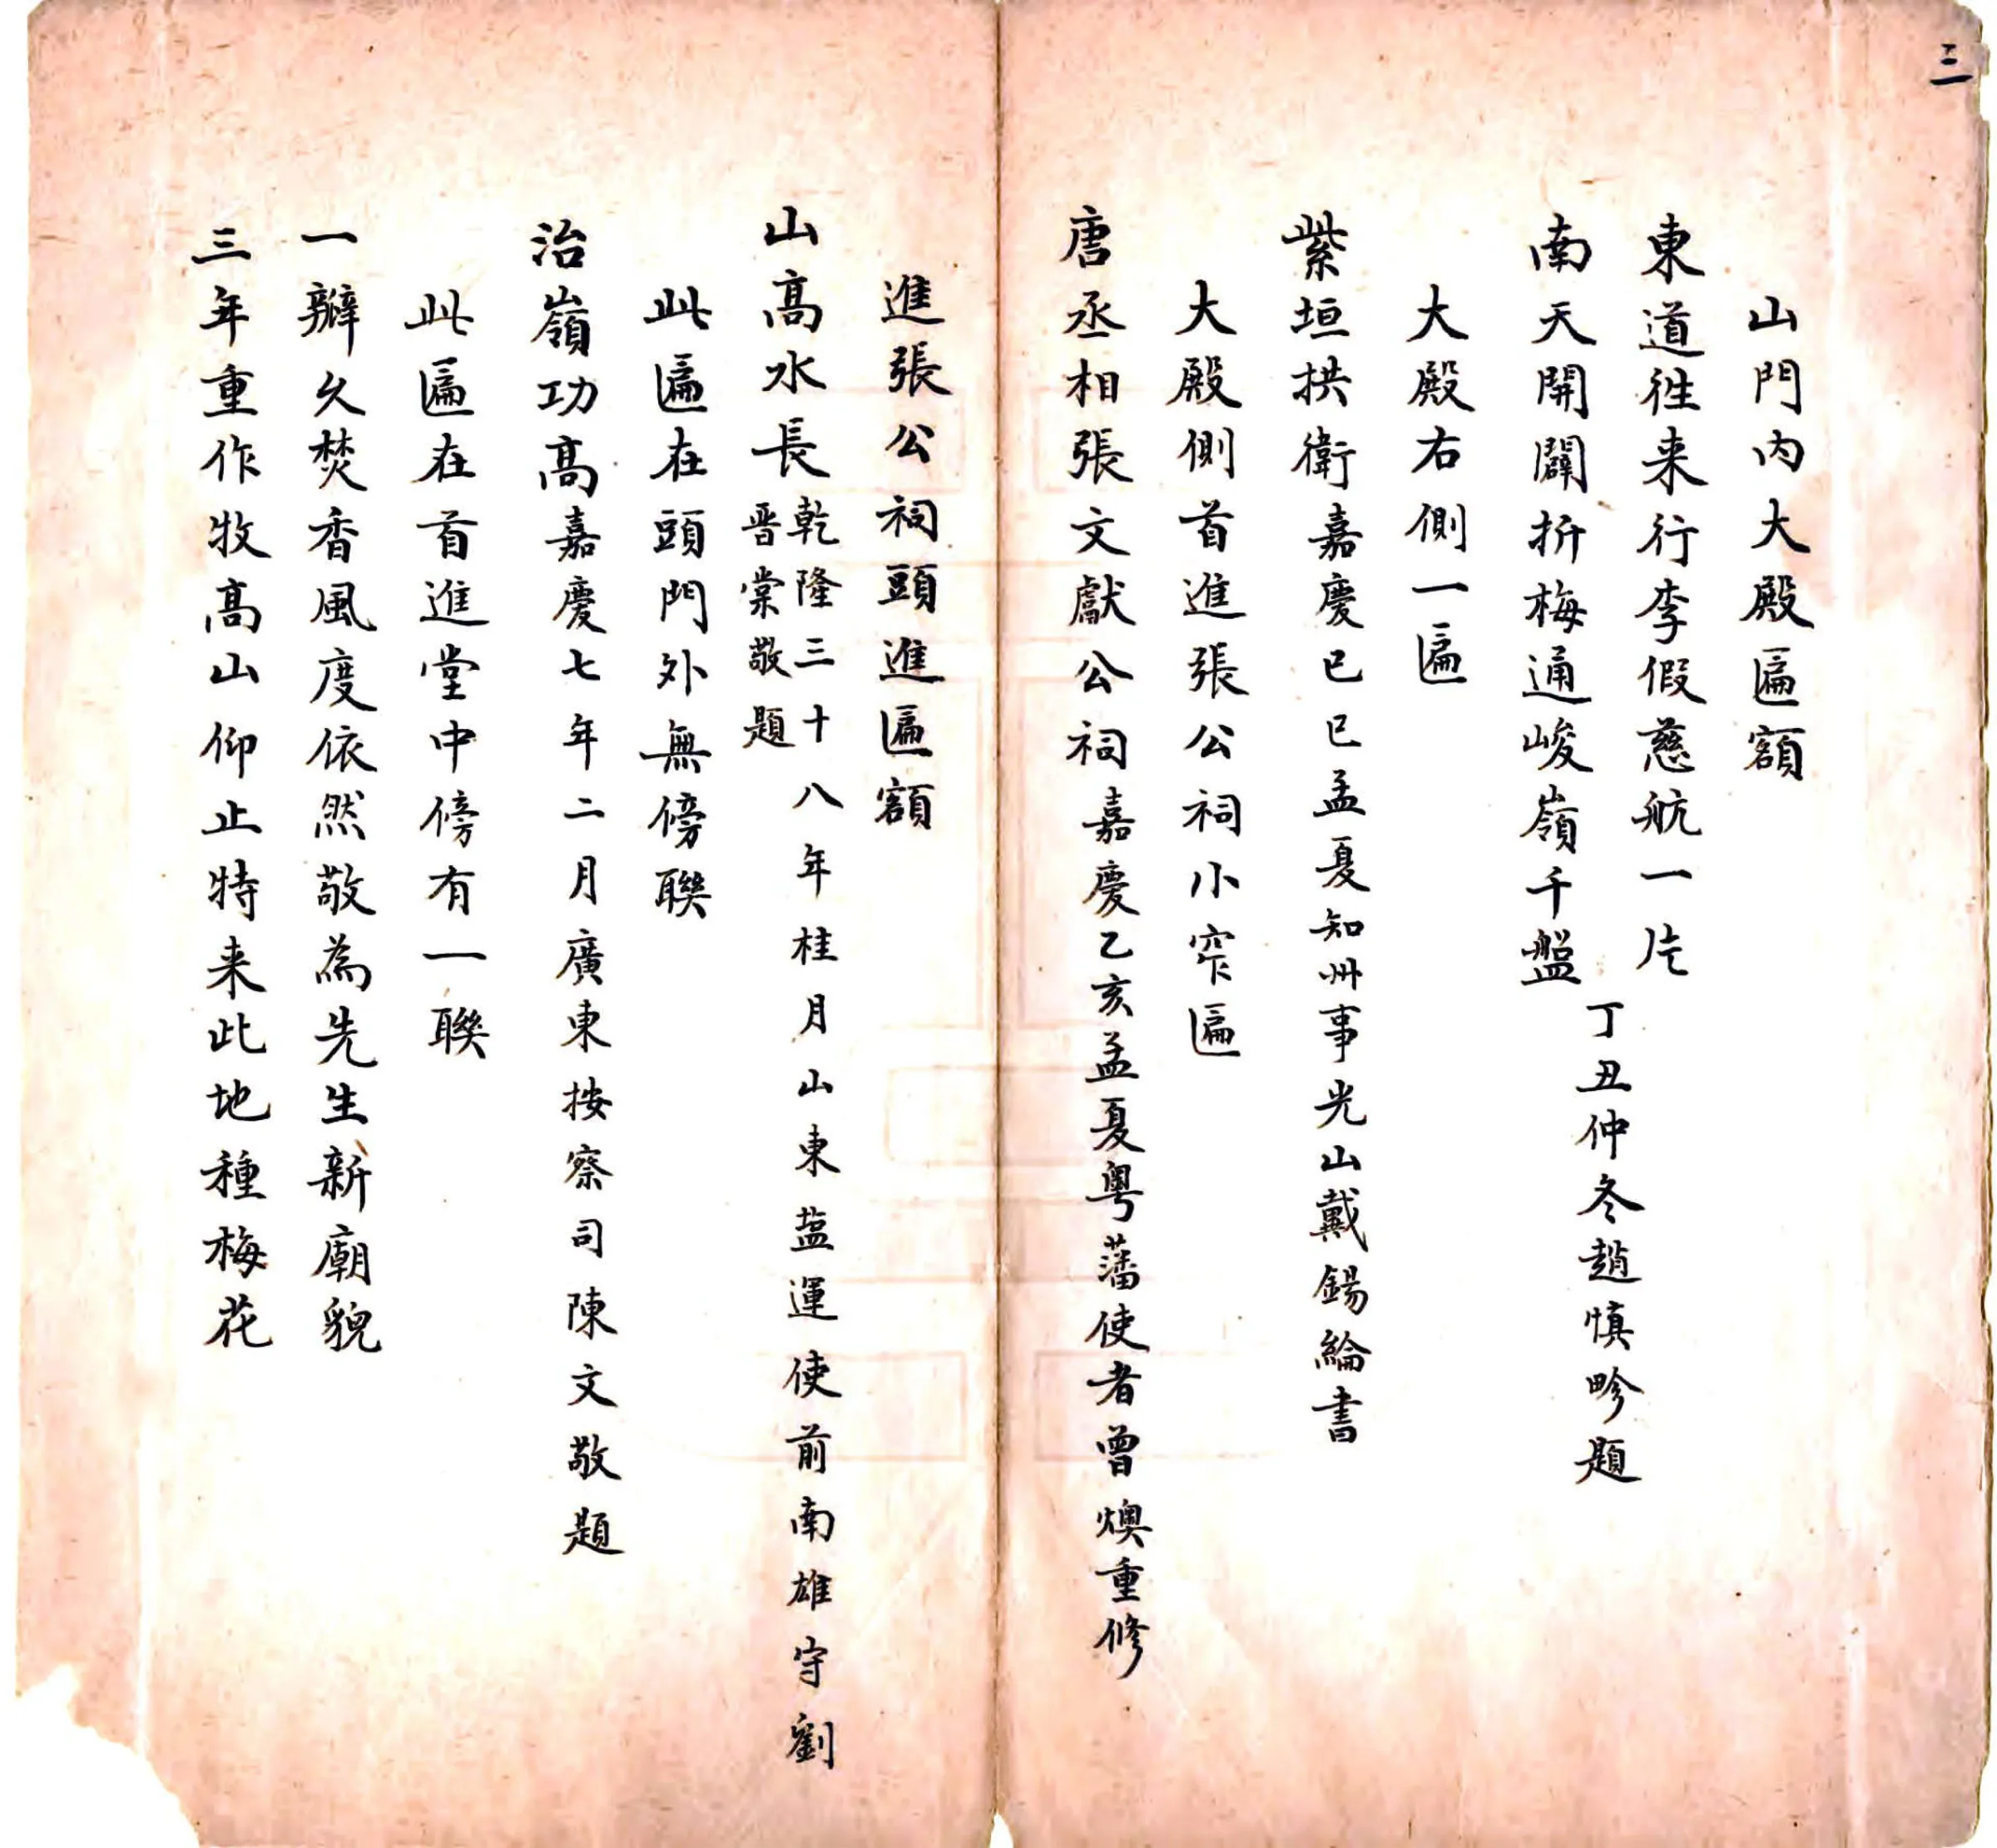 三
山門内大殿匾額
東道徃来行李假慈航一片
南天開闢折梅通峻嶺千盤
丁丑仲冬趙慎畛題
大殿右側一匾
紫垣拱衛嘉慶己巳孟夏知州事光山戴錫綸書
大殿側首進張公祠小窄匾
唐丞相張文獻公祠嘉慶乙亥孟夏粤藩使者曾燠重修
進張公祠頭進匾額
山高水長乾隆三十八年桂月山東盐運使前南雄守劉
晋棠敬題
此匾在頭門外無傍聯
治嶺功高嘉慶七年二月廣東按察司陳文敬題
此匾在首進堂中傍有一聯
一辦久焚香風度依然敬為先生新廟貌
三年重作牧高山仰止特来此地種梅花